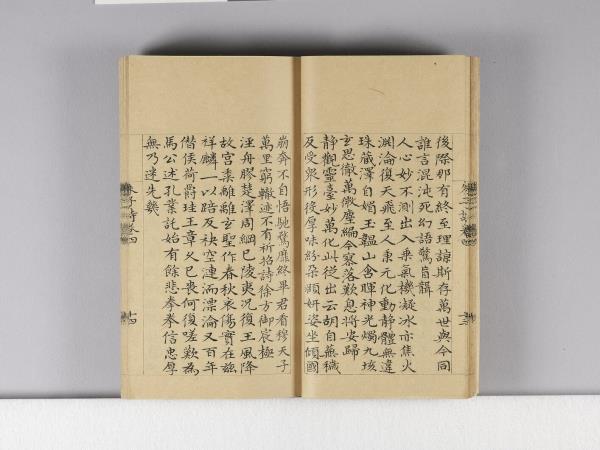 後際那有終至理諒斯存萬世與今同
誰言混沌死幻語驚盲聾
人心妙不測出入乘氣機凝冰亦焦火
淵淪復天飛至人秉元化動靜體無違
珠藏澤自媚玉韞山含暉神光燭九垓
玄思徹萬微塵編今寥落歎息將安歸
靜觀靈臺妙萬化此從出云胡自蕪穢
反受衆形役厚味紛朶頤妍姿坐傾國
崩奔不自悟馳騖靡終畢君看穆天子
萬里窮轍迹不有祈招詩徐方御宸極
涇舟膠楚澤周綱已陵夷況復王風降
故宮黍離離玄聖作春秋哀傷實在茲
祥麟一以踣反袂空漣洏漂淪又百年
僭侯荷爵珪王章久已喪何復嗟歎為
馬公述孔業託始有餘悲拳拳信忠厚
無乃迷先幾